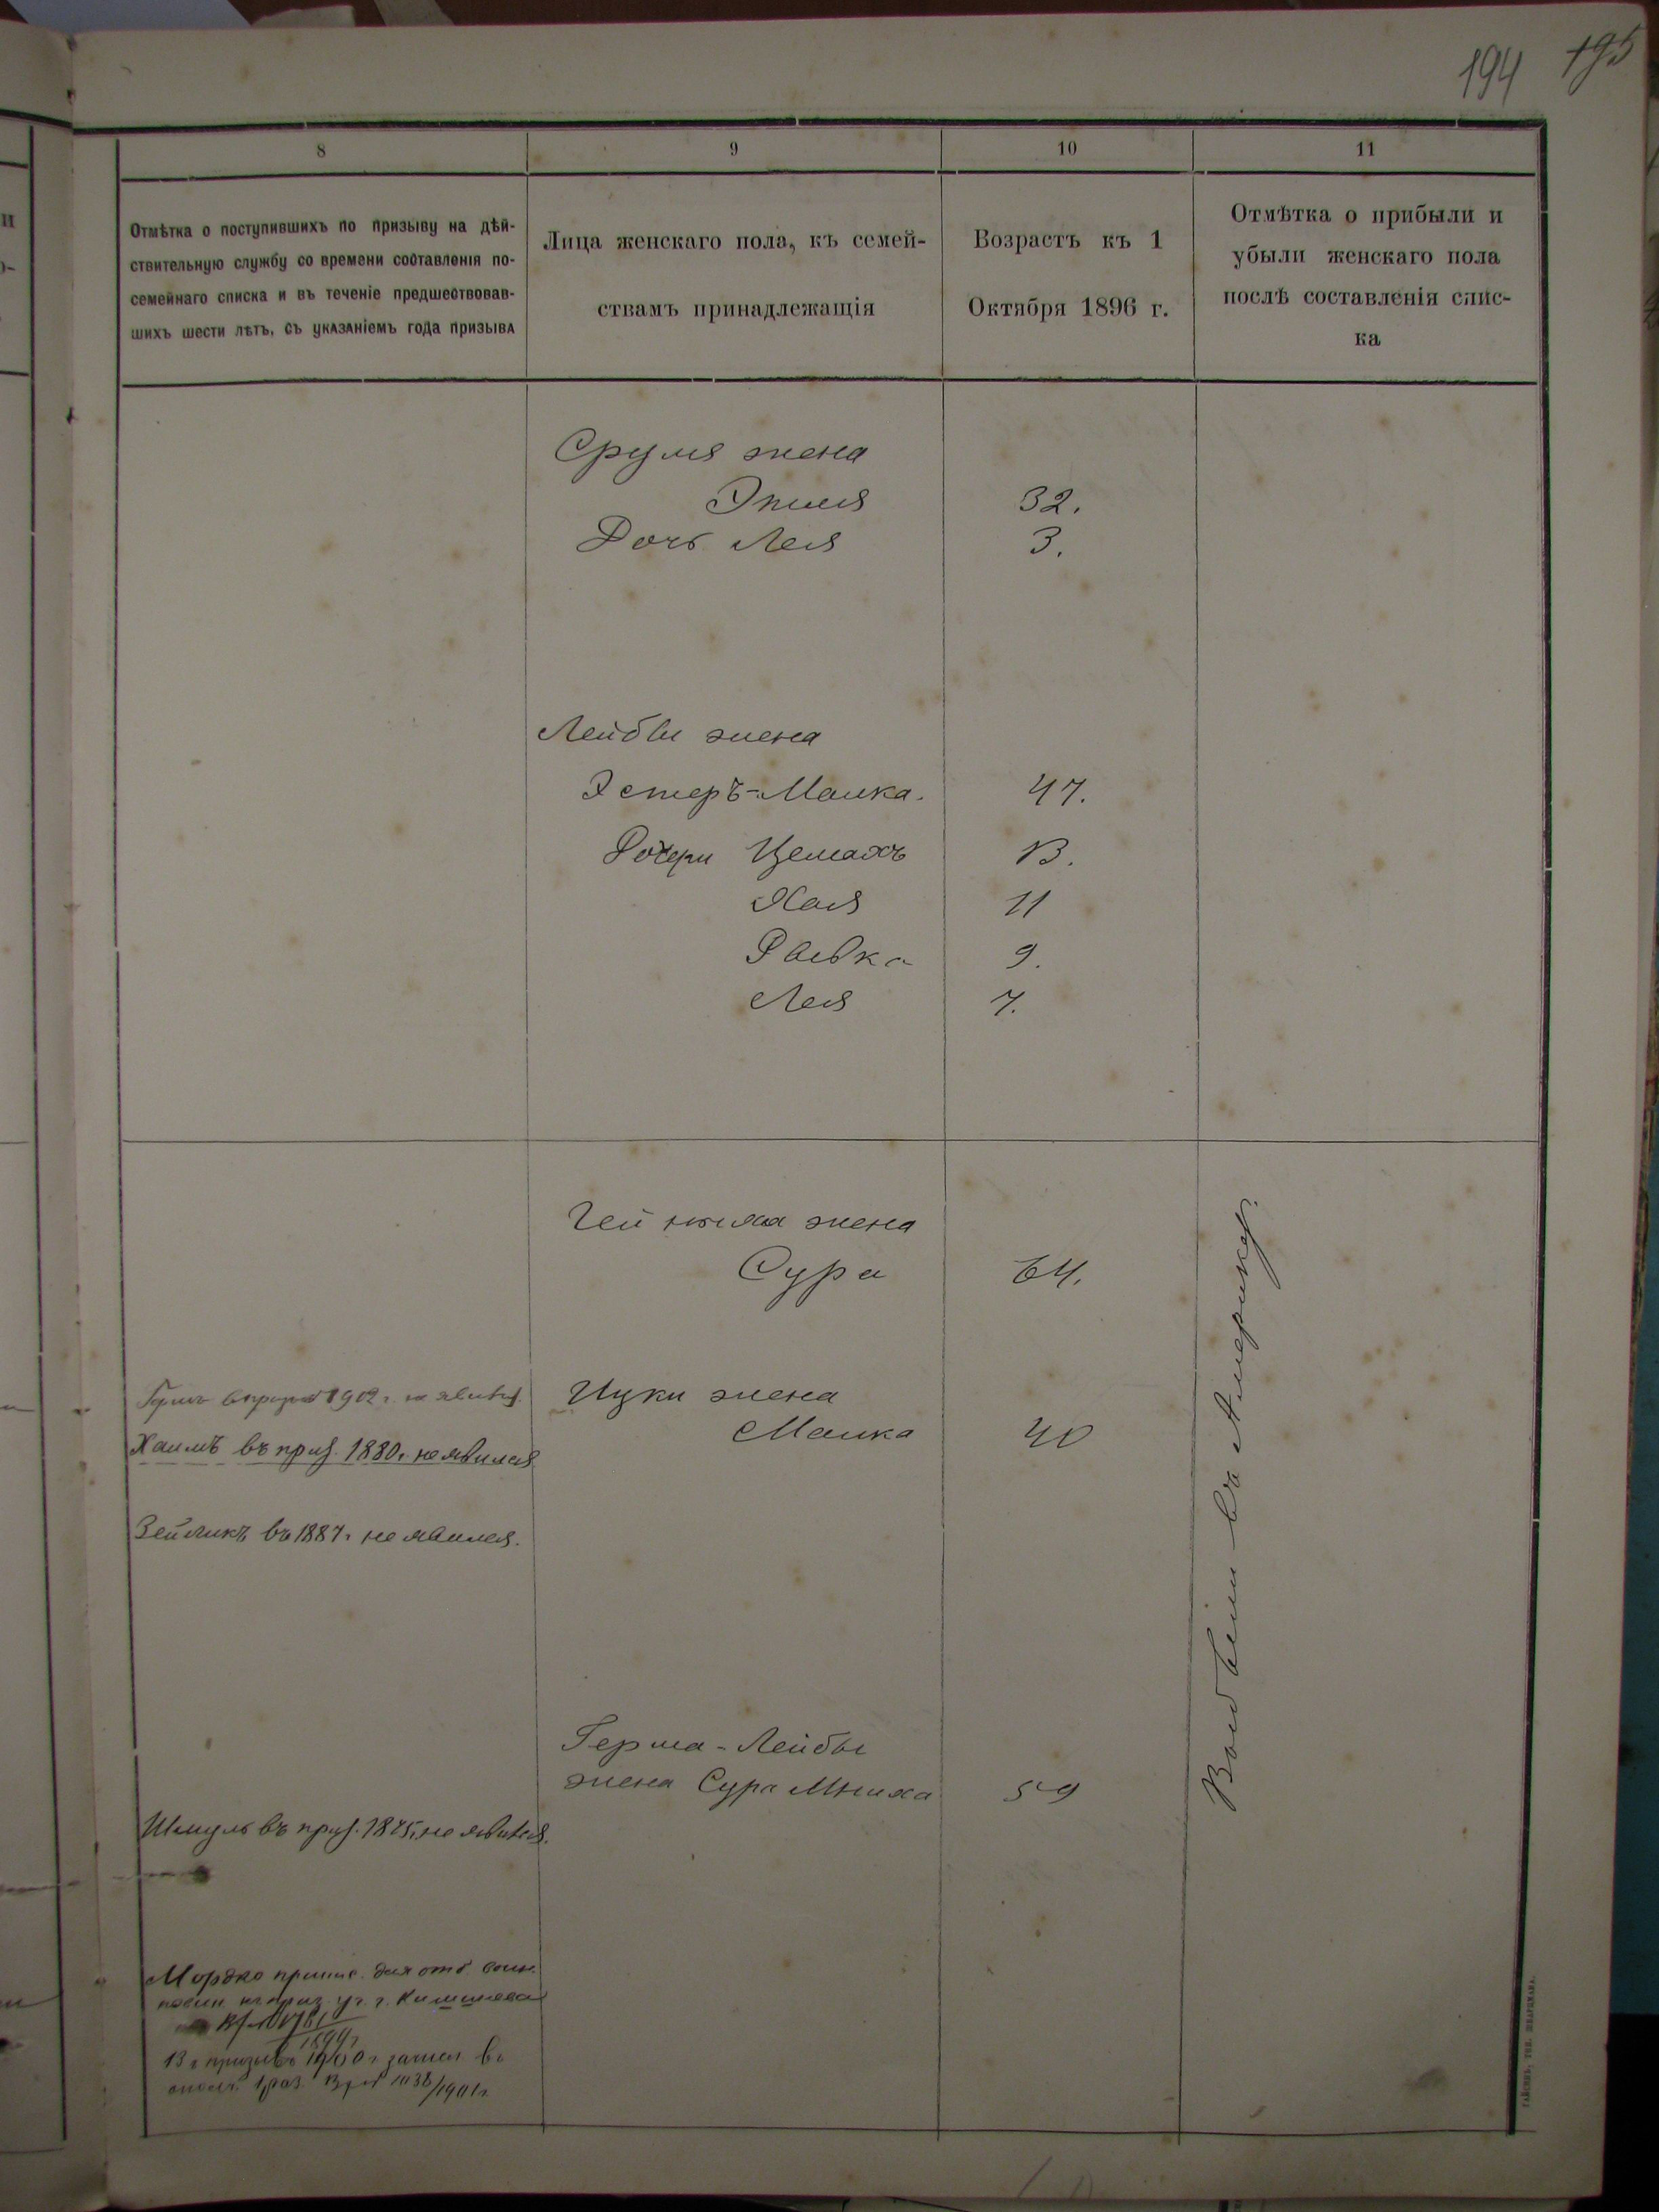 194 195
8
9
10
11
Отмѣтка о поступившихъ по призыву на дѣй-
ствительную службу со времени составленія по-
семейнаго списка и въ теченіе предшествовав-
шихъ шести лѣтъ, съ указаніемъ года призыва
Лица женскаго пола, къ семей-
ствамъ принадлежащія
Возрастъ къ 1
Октября 1896 г.
Отмѣтка о прибыли и
убыли женскаго пола
послѣ составленія спис-
ка
Сруля жена
32.
Дочь Лея 3.
Лейбы жена
Эстеръ-Малка. 47.
Дочери Цемахъ 13.
Хая 11
Рывка 9.
Лея 7.
жена
Сура 64.
1902 г. не явился
Ицки жена
Малка 40
Хаимъ въ приз. 1880 г. не явился
Зейликъ въ 1887 г. не явился.
Герша-Лейбы
жена Сура Мниха 59
Шмуль въ приз. 1875 г. не явился.
въ Америку.
Мордко припис. для отб. воин.
повин. къ приз. уч. г. Кишинева
1899 г.
Въ призывъ 1900 г. зачисл въ
ополч. 1 раз. 1038/1901 г.